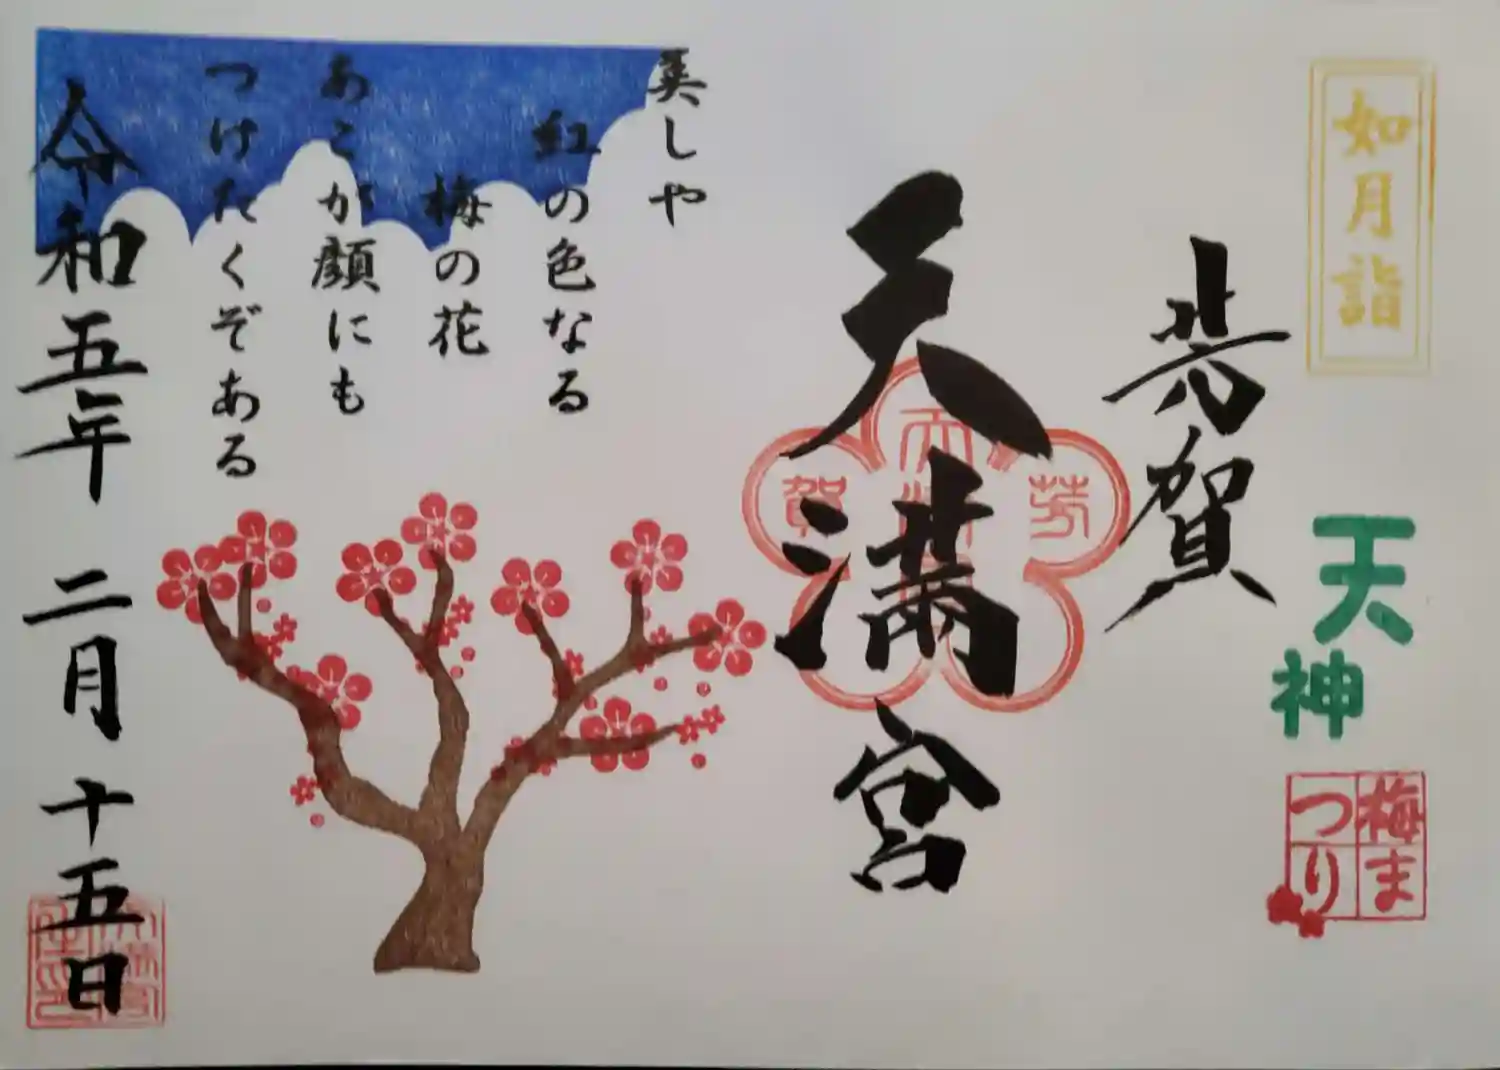 如月詣
天神
梅まつり
芳賀
天満宮
芳
賀
美しや
紅の色なる
梅の花
あこが顔にも
つけたくぞある
令和五年 二月 十五日